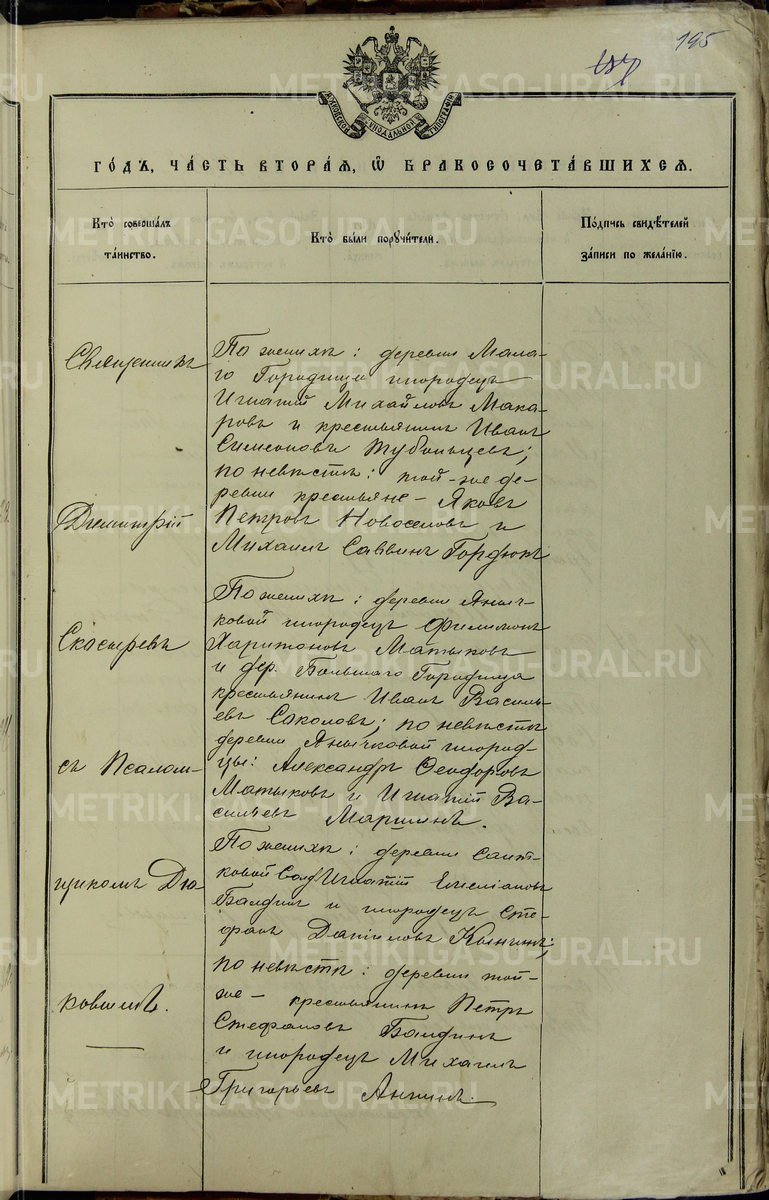 195
СѴНОДАЛЬНОЙ
ТИПОГРАФІИ
ГОДЪ, ЧАСТЬ ВТОРАЯ, Ѿ БРАКОСОЧЕТАВШИХСЯ.
Кто совершалъ
таинство.
Кто были поручители.
Подпись свидѣтелей
записи по желанію.
Священникъ
Димитрій
съ Псалом-
щикомъ Дья
ковымъ.
По женихѣ: деревни Мала-
го Городища инородецъ
Игнатій Михайловъ Мака-
ровъ и крестьянинъ Иванъ
Симеоновъ
по невѣстѣ: той-же де-
ревни крестьяне - Яковъ
Петровъ Новоселовъ и
Михаилъ Саввинъ
По женихѣ: деревни Яныч-
ковой инородецъ Филимонъ
Харитоновъ Матыковъ
и дер. Большаго Городища
крестьянинъ Иванъ Василь-
евъ Соколовъ; по невѣстѣ
деревни Янычковой инород-
цы: Александръ Ѳеодоровъ
Матыковъ и Игнатій Ва-
сильевъ Маршинъ.
По женихѣ: деревни Саит-
ковой Игнатій Емеліановъ
Балдинъ и инородецъ Сте-
фанъ Даніиловъ
по невѣстѣ: деревни той-
же - крестьянинъ Петръ
Стефановъ Балдинъ
и инородецъ Михаилъ
Григорьевъ Анчинъ.
METRIKI.GASO-URAL.RU